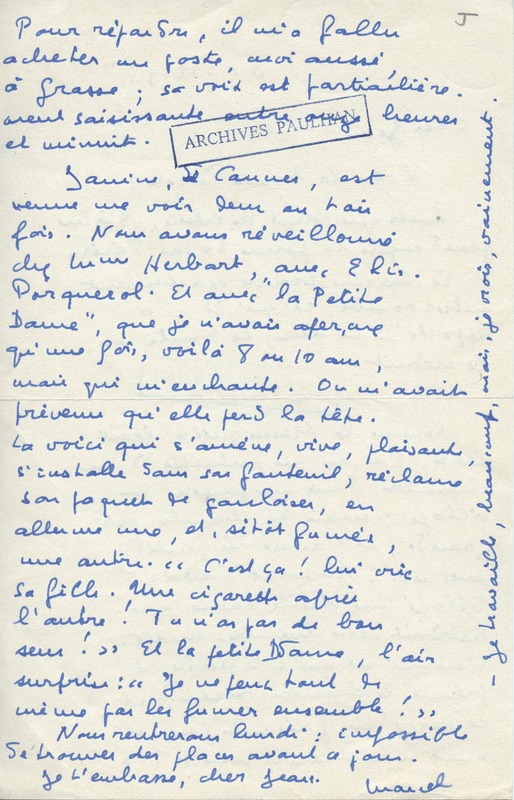 5
Pour répandre, il m'a fallu
acheter un poste, moi aussi,
à Grasse ; sa voix est particulière-
ment saisissante entre onze heures
et minuit.
ARCHIVES PAULHAN
Janine, de Cannes, est
venue me voir deux ou trois
fois. Nous avons réveillonné
chez Mme Herbart, avec Elis.
Porquerol. Et avec "la Petite
Dame", que je n'avais aperçue
qu'une fois, voilà 8 ou 10 ans,
mais qui m'enchante. On m'avait
prévenu qu'elle perd la tête.
La voici qui s'amène, vive, plaisante,
s'installe dans son fauteuil, réclame
son paquet de gauloises, en
allume une, et, sitôt fumée,
une autre. « C'est ça ! lui crie
sa fille. Une cigarette après
l'autre ! Tu n'as pas de bon
sens ! » Et la petite Dame, l'air
surprise : « Je ne peux tout de
même pas les fumer ensemble ! »
Nous rentrerons lundi : impossible
de trouver des places avant ce jour.
Je t'embrasse, cher Jean.
Marcel
– Je travaille, beaucoup, mais, je crois, vainement.